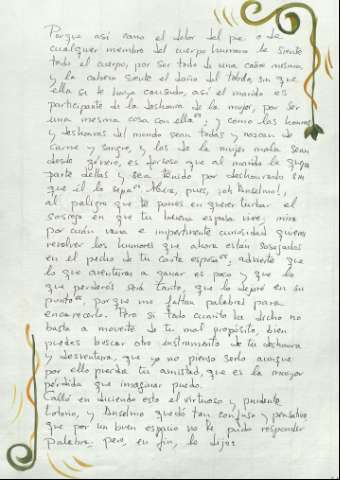 Porque así como el dolor del pie o de
cualquier miembro del cuerpo humano le siente
todo el cuerpo, por ser todo de una carne mesma,
y la cabeza siente el daño del tobillo, sin que
ella se le haya causado, así el marido es
participante de la deshonra de la mujer, por ser
una mesma cosa con ella; y como las honras
y deshonras del mundo sean todas y nazcan de
carne y sangre, y las de la mujer mala sean
deste género, es forzoso que al marido le quepa
parte dellas y sea tenido por deshonrado sin
que él lo sepa. Mira, pues, ¡oh Anselmo!,
al peligro que te pones en querer turbar el
sosiego en que tu buena esposa vive; mira
por cuán vana e impertinente curiosidad quieres
revolver los humores que ahora están sosegados
en el pecho de tu casta esposa, advierte que
lo que aventuras a ganar es poco y que lo
que perderás será tanto, que lo dejaré en su
punto, porque me faltan palabras para
encarecerlo. Pero si todo cuanto he dicho no
basta a moverte de tu mal propósito, bien
puedes buscar otro instrumento de tu deshonra
y desventura, que yo no pienso serlo aunque
por ello pierda tu amistad, que es la mayor
pérdida que imaginar puedo.
Calló en diciendo esto el virtuoso y prudente
Lotario, y Anselmo quedó tan confuso y pensativo
que por un buen espacio no le pudo responder
palabra; pero, en fin, le dijo: